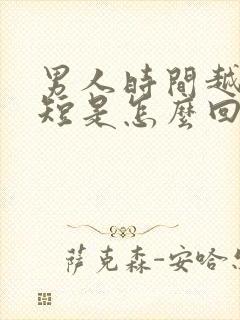 男人時間越
短是怎麼回
萨克森-安哈